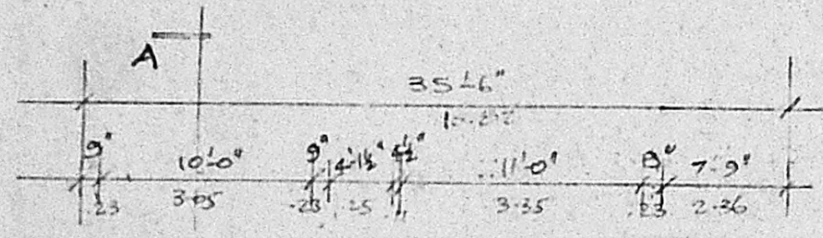 A
35'-6"
9" 10'-0" 9" 4'-1½" 4½" 11'-0" 9" 7'-9"
.23 3.05 .23 .25 .11 3.35 .23 2.36